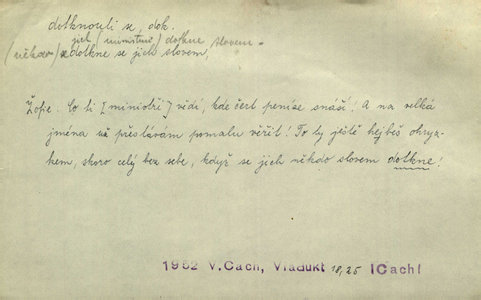 dotknouti se, dok.
jich (ministrů) dotkne slovem.
(někdo) dotkne se jich slovem,
Žofie: Co ti [ministři] vědí, kde čert peníze snáší! A na velká
jména už přestávám pomalu věřit! To ty ještě hejbeš ohryz-
kem, skoro celý bez sebe, když se jich někdo slovem dotkne!
1952 V.Cach, Viadukt 18,25 ICachf